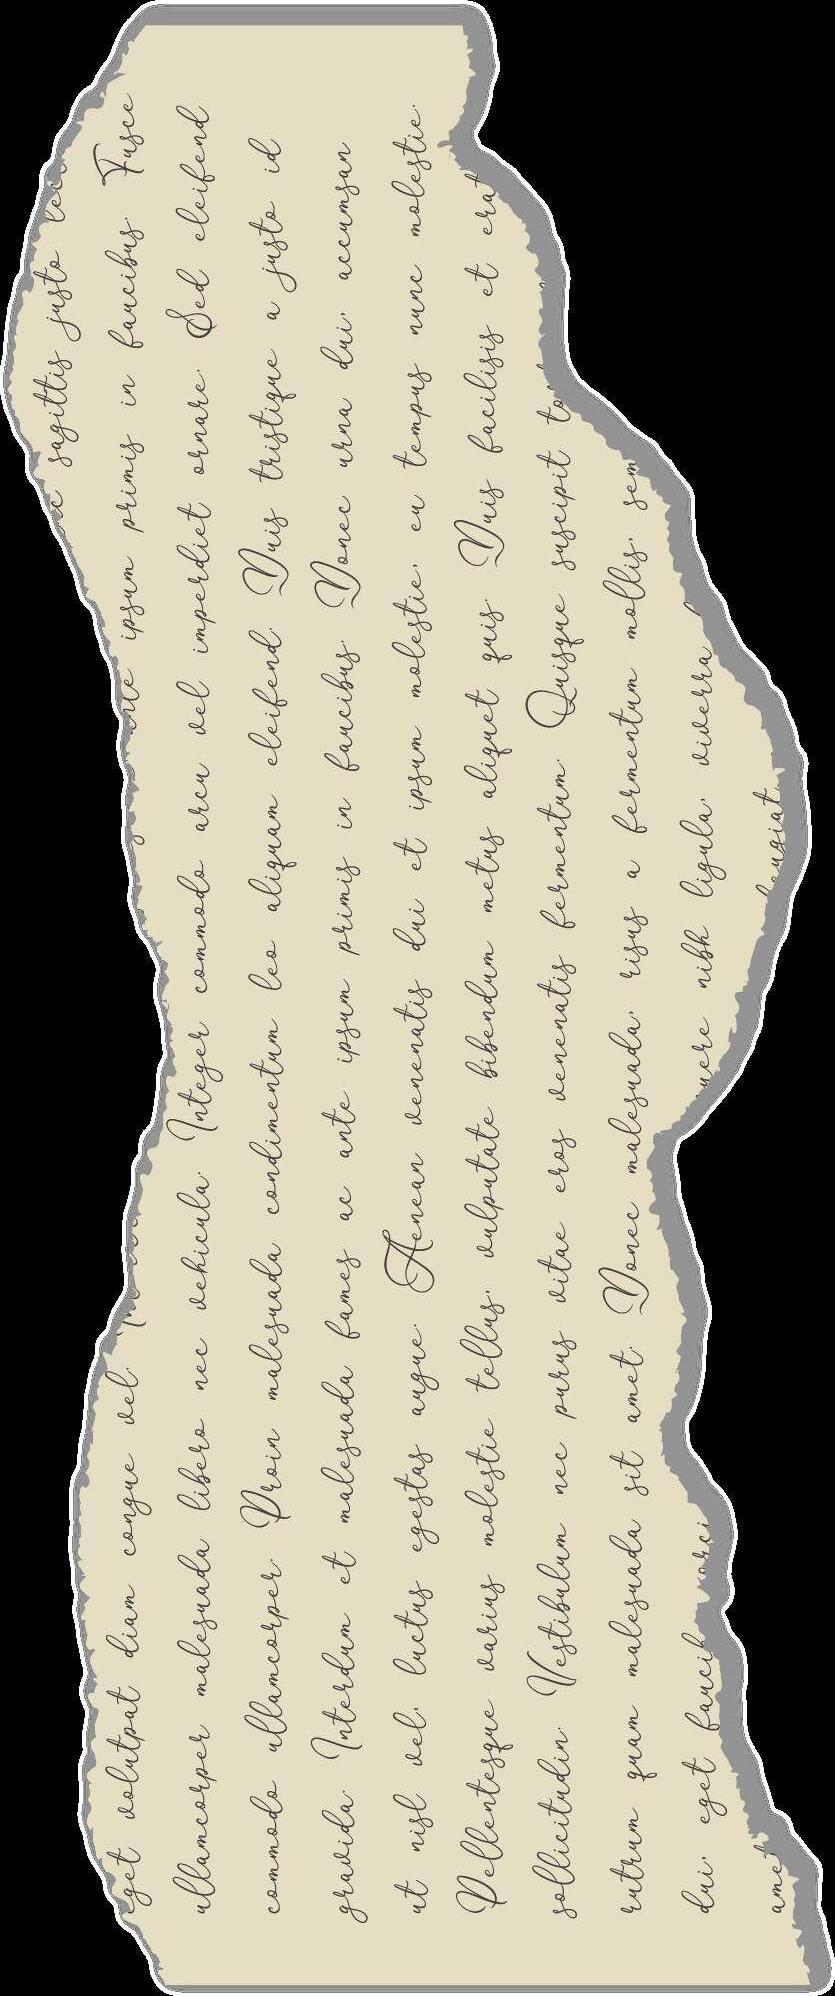 sagittis justo
eget volutpat diam congue vel. ipsum primis in faucibus. Fusce
ullamcorper malesuada libero nec vehicula. Integer commodo arcu vel imperdiet ornare. Sed eleifend
commodo ullamcorper. Proin malesuada condimentum leo aliquam eleifend. Duis tristique a justo id
gravida. Interdum et malesuada fames ac ante ipsum primis in faucibus. Donec urna dui, accumsan
ut nisl vel, luctus egestas augue. Aenean venenatis dui et ipsum molestie, eu tempus nunc molestie.
Pellentesque varius molestie tellus, vulputate bibendum metus aliquet quis. Duis facilisis et erat
sollicitudin. Vestibulum nec purus vitae eros venenatis fermentum. Quisque suscipit
rutrum quam malesuada sit amet. Donec malesuada, risus a fermentum mollis, sem
dui, eget nibh ligula, viverra
feugiat